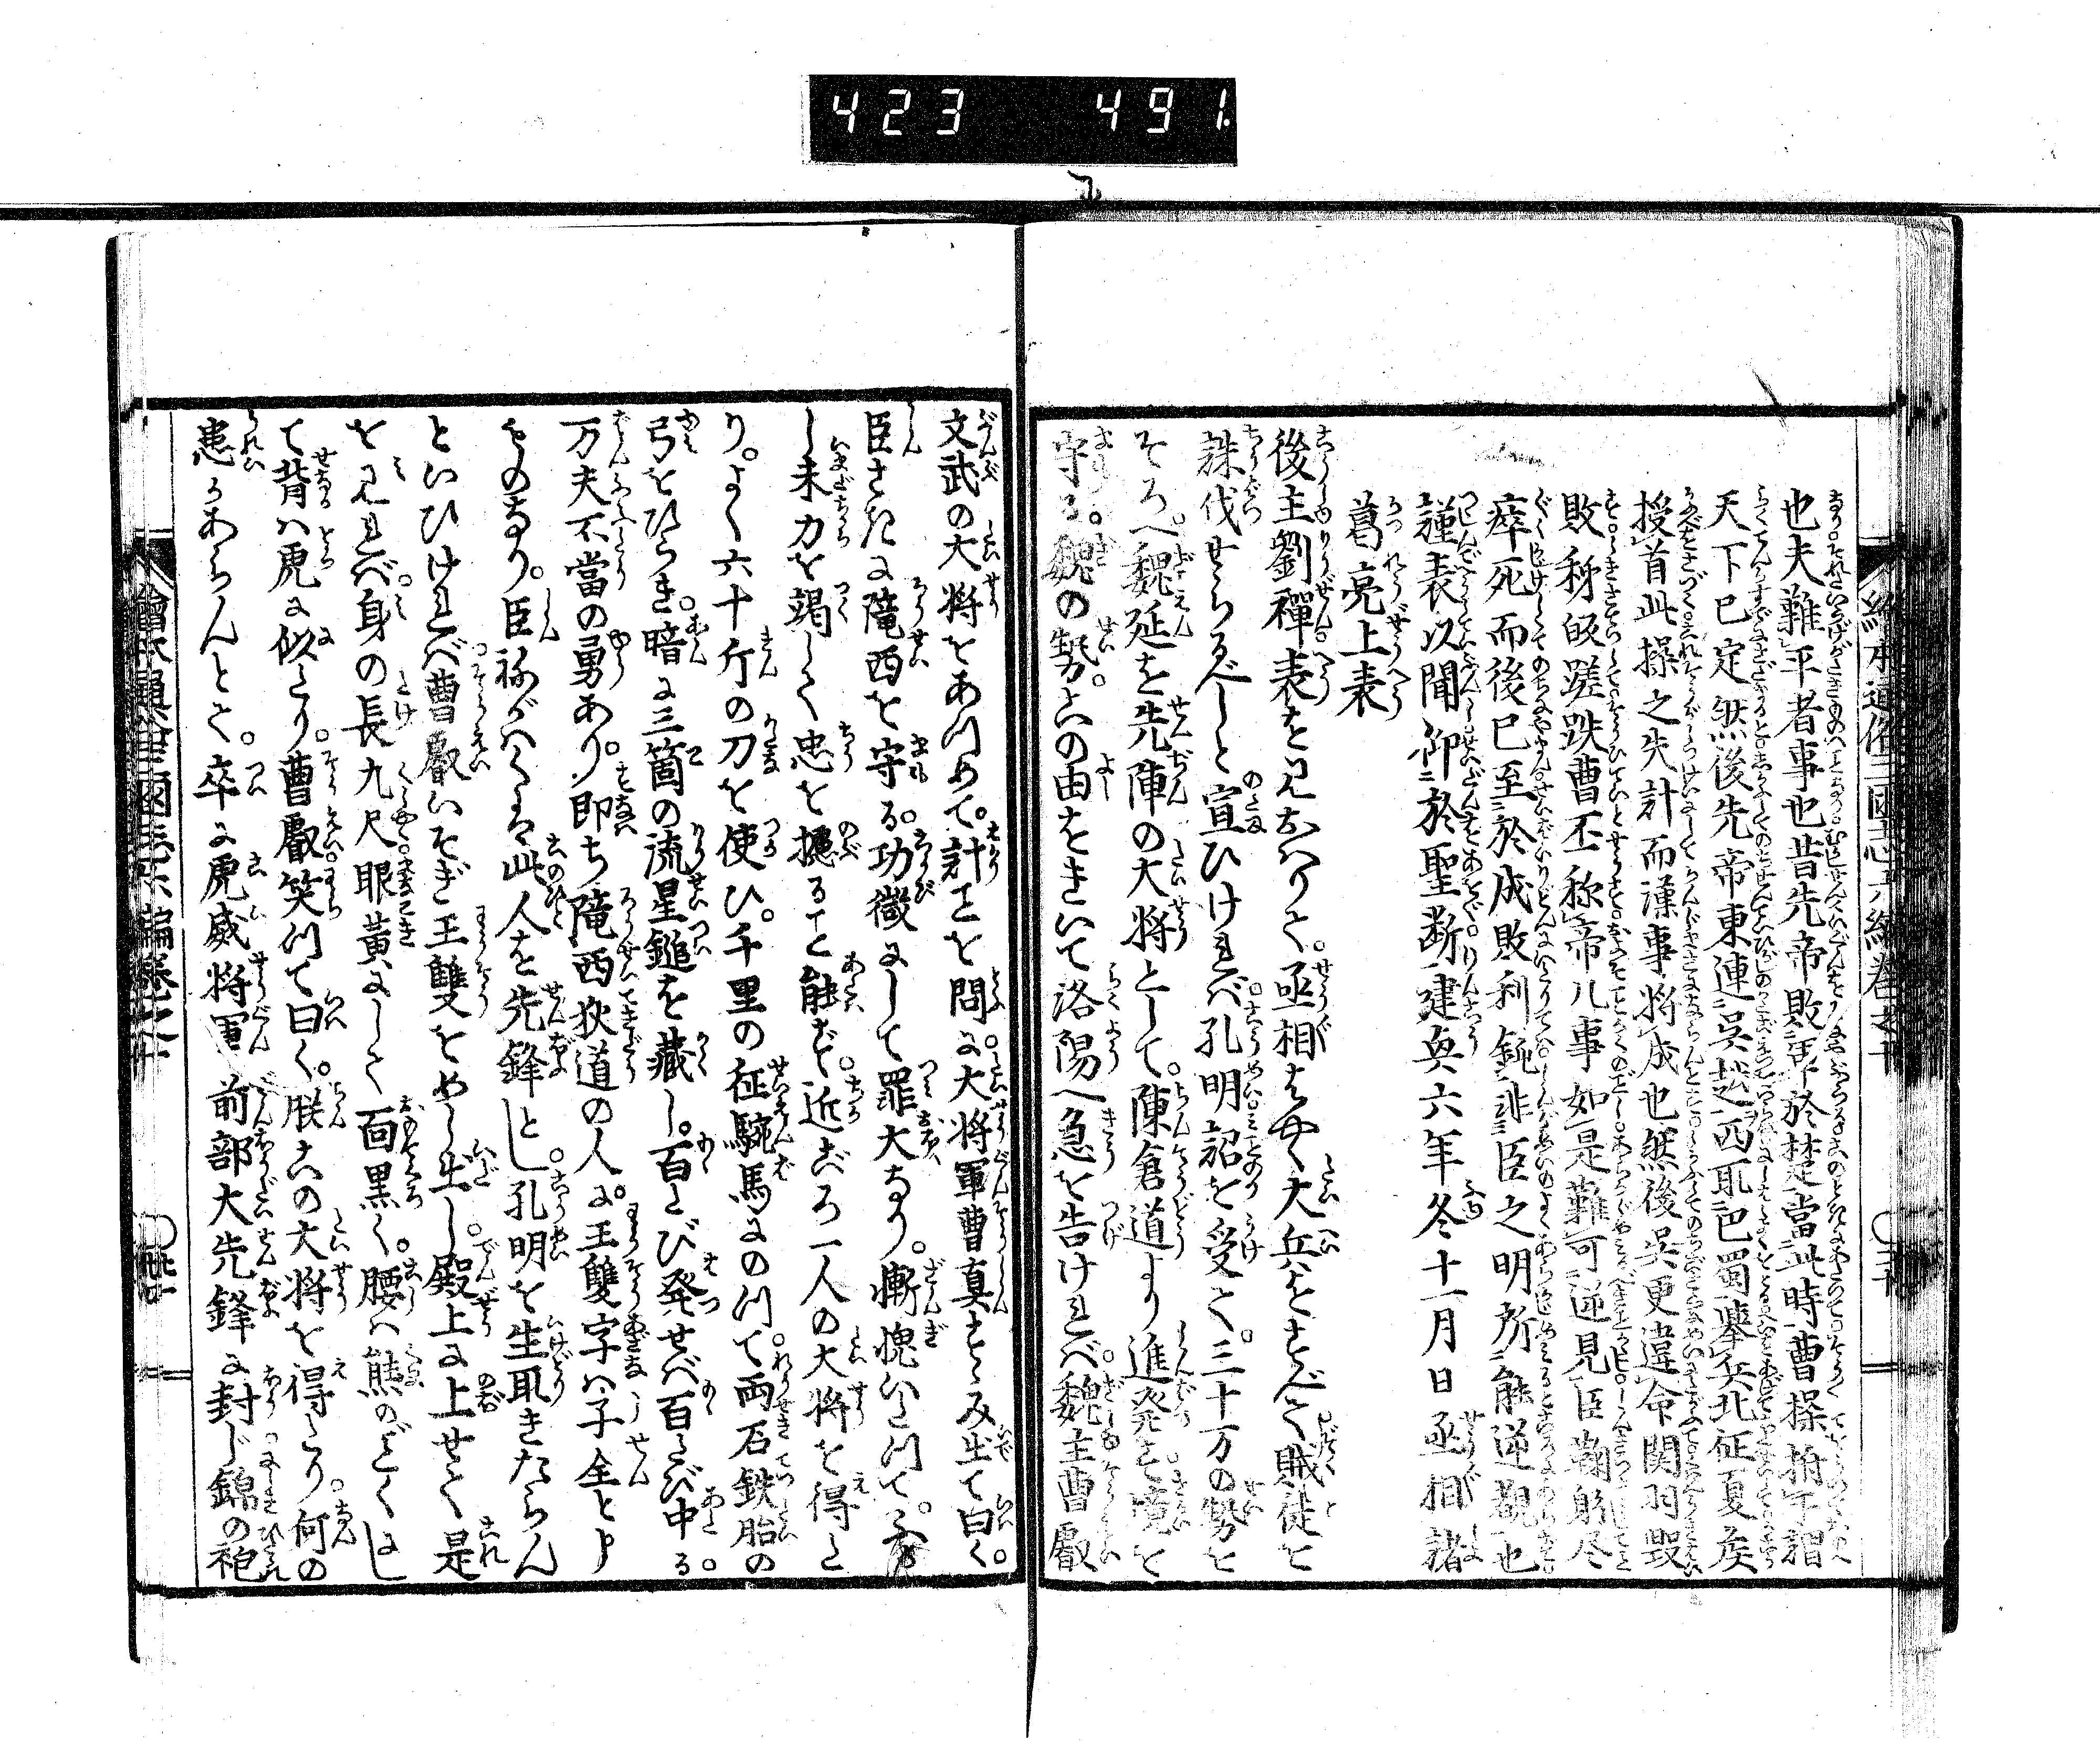 423 491.
絵本通俗三國志六編巻之十
也夫難平者事也昔先帝敗軍於楚當此時曹操拊手謂
天下已定然後先帝東連吳越西取巴蜀擧兵北征夏侯
授首此操之失計而漢事将成也然後吳更違命関羽毀
敗秭皈蹉跌曹丕称帝凡事如是難可逆見臣鞠躬尽
瘁死而後已至於成敗利鈍非臣之明所能逆覩也
謹表以聞仰於聖断建興六年冬十一月日丞相諸
葛亮上表
後主劉禪表を見たまハりて。丞相はやく大兵をすゝめて賊徒を
誅伐せらるべしと宣ひけれバ孔明詔を受て。三十万の勢を
そろへ。魏延を先陣の大将として。陳倉道より進発す境を
守る。魏の勢。この由をきいて洛陽へ急を告けれバ。魏主曹叡
文武の大将をあつめて。計ことを問ふ。大将軍曹真すゝみ出て曰く。
臣さきに隴西を守る。功微にして罪大なり。慚愧いたつて。
し未力を竭して忠を攄ること能ず。近ごろ一人の大将を得た
り。よく六十斤の刀を使ひ。千里の征䮍馬にのつて。両石鉄胎の
弓をひらき。暗に三箇の流星鎚を藏し。百たび発せバ百たび中る。
万夫不當の勇あり。即ち隴西狄道の人。王雙字ハ子全とい
ものなり。臣ねがハくハ此人を先鋒とし。孔明を生取きたらん
といひけれバ。曹叡いそぎ王雙をめし出し。殿上に上せて是
を見れバ。身の長九尺眼黄にして面黒く。腰ハ熊のごとくにし
て背ハ虎に似たり。曹叡笑つて曰く。朕この大将を得たり。何の
患かあらんとて。卒に虎威将軍前部大先鋒に封じ錦の袍